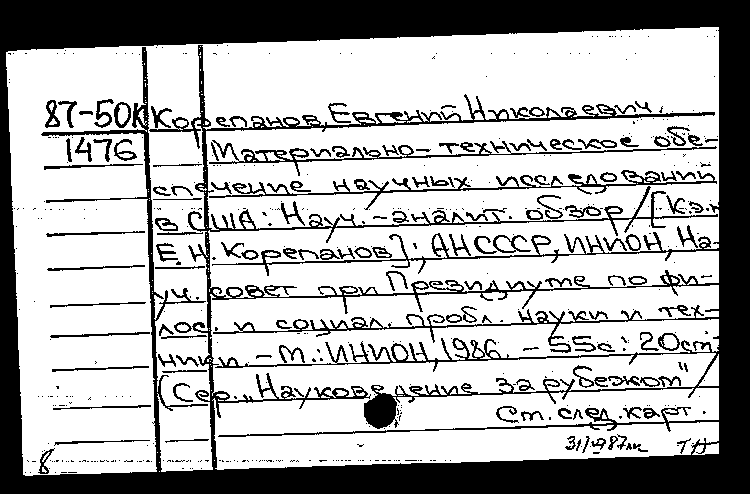 87-50К Корепанов, Евгений Николаевич.
1476 Материально-техническое обе-
спечение научных исследований
в США: Науч.-аналит. обзор / [К.э.н
Е. Н. Корепанов]; АН СССР, ИНИОН, На-
уч. совет при Президиуме по фи-
лос. и социал. пробл. науки и тех-
ники. - М.: ИНИОН, 1986. - 55с.; 20см.
(Сер. „Науковедение за рубежом" /
См. след. карт.
8 ТН